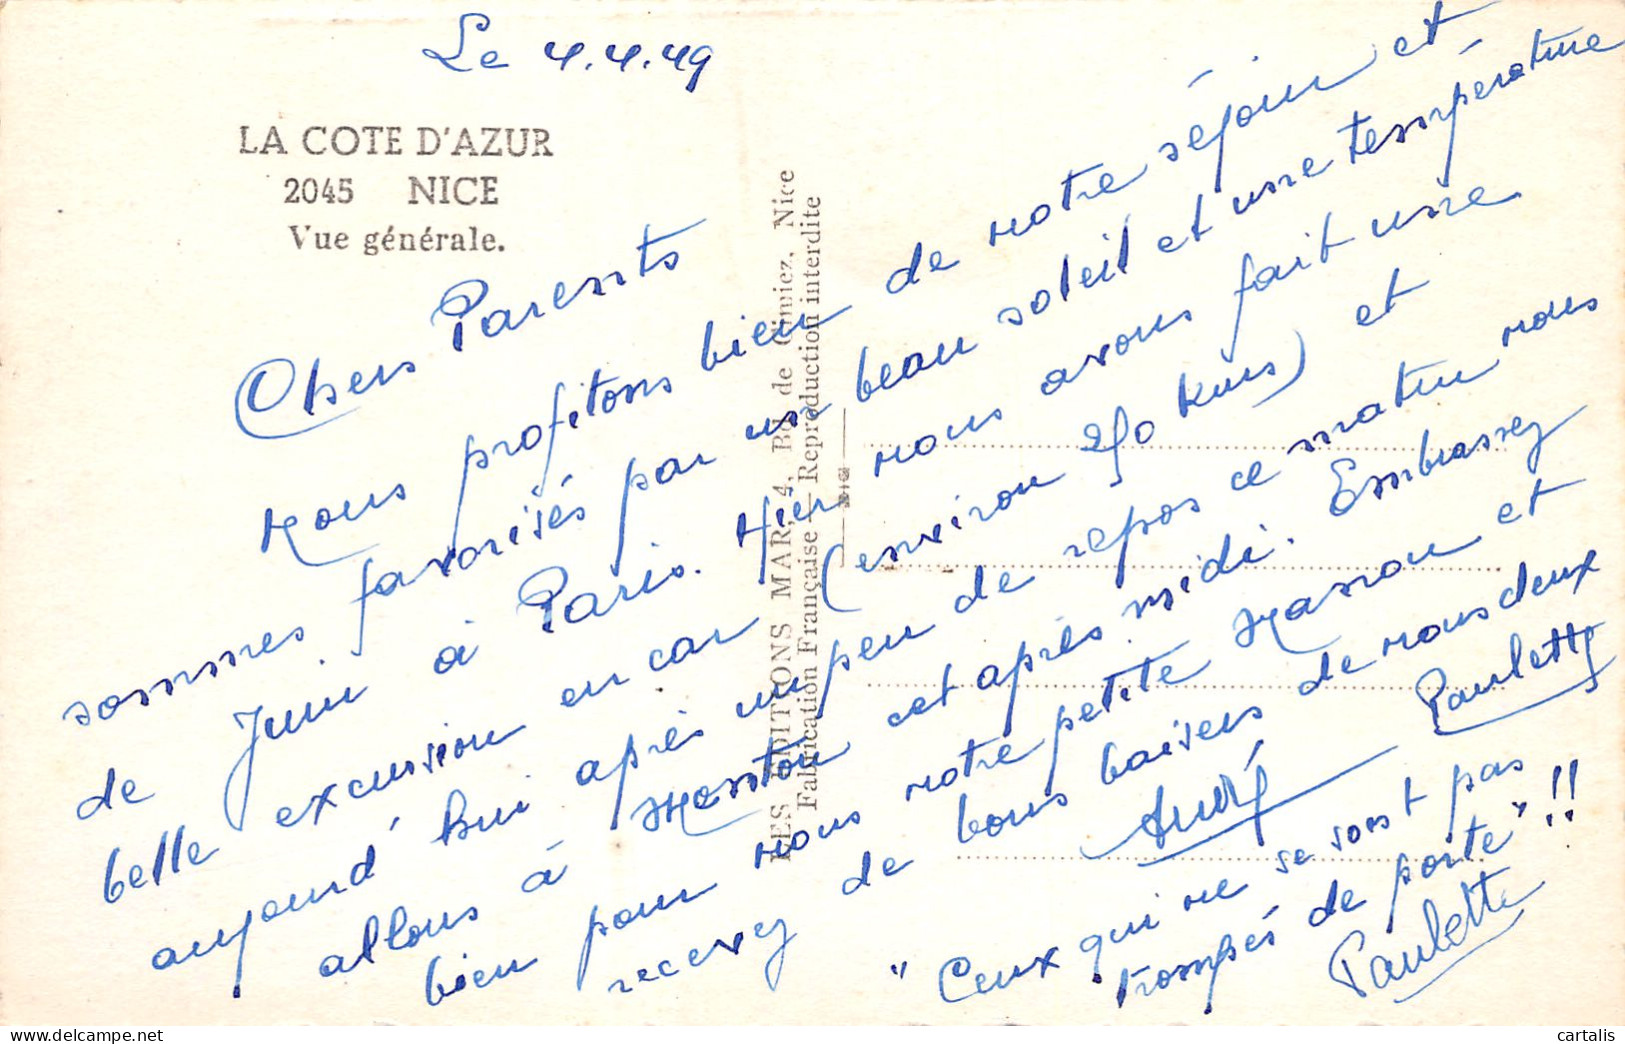 Le 4.4.49
LA COTE D'AZUR
2045 NICE
Vue générale.
Chers Parents
Nous profitons bien de notre séjour et
sommes favorisés par un beau soleil et une température
de Juin à Paris. Hier nous avons fait une
belle excursion en car (environ 250 kms) et
aujourd'hui après un peu de repos ce matin nous
allons à Menton cet après midi. Embrassez
bien pour nous notre petite Manon et
recevez de bons baisers de nous deux
André Paulette
"Ceux qui ne se sont pas
trompés de porte"!!
Paulette
LES EDITIONS MAR, 4, Bd. de Cimiez, Nice
Fabrication Française — Reproduction interdite
cartalis